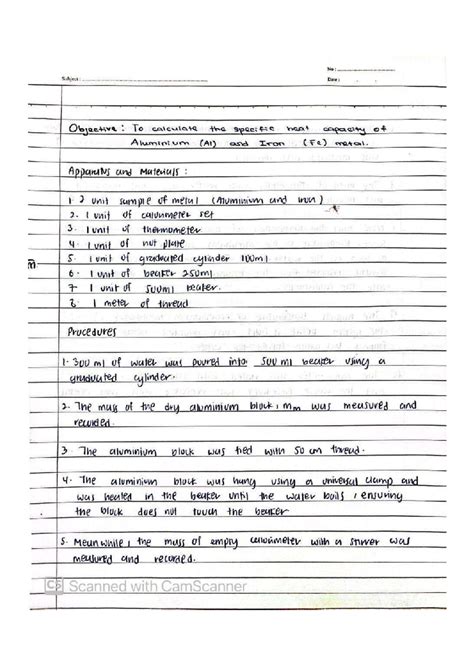 No :
Subject :
Date :
Objective : To calculate the specific heat capacity of
Aluminium (Al) and Iron (Fe) metal.
Apparatus and Materials :
1. 2 unit sample of metal (Aluminium and Iron)
2. 1 unit of calorimeter set
3. 1 unit of thermometer
4. 1 unit of hot plate
5. 1 unit of graduated cylinder 100ml
6. 1 unit of beaker 250ml
7. 1 unit of 500ml beaker.
8. 1 meter of thread
Procedures
1. 300 ml of water was poured into 500 ml beaker using a
graduated cylinder.
2. The mass of the dry aluminium block, mm was measured and
recorded.
3. The aluminium block was tied with 50 cm thread.
4. The aluminium block was hung using a universal clamp and
was heated in the beaker until the water boils, ensuring
the block does not touch the beaker
5. Meanwhile, the mass of empty calorimeter with a stirrer was
measured and recorded.
CS Scanned with CamScanner